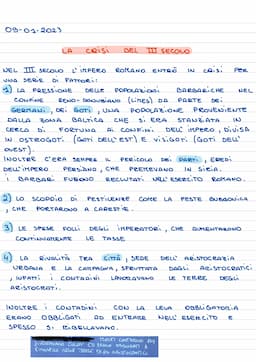 09-01-2023
LA CRISI DEL III SECOLO
NEL III SECOLO L'IMPERO ROMANO ENTRÒ IN CRISI PER
UNA SERIE DI FATTORI:
1) LA PRESSIONE DELLE POPOLAZIONI BARBARICHE NEL
CONFINE RENO-DANUBIANO (LIMES) DA PARTE DEI
GERMANI, DEI GOTI, UNA POPOLAZIONE PROVENIENTE
DALLA ZONA BALTICA CHE SI ERA STANZIATA IN
CERCA DI FORTUNA AI CONFINI DELL'IMPERO, DIVISA
IN OSTROGOTI (GOTI DELL'EST) E VISIGOTI (GOTI DELL'
OVEST).
INOLTRE C'ERA SEMPRE IL PERICOLO DEI PARTI, EREDI
DELL'IMPERO PERSIANO, CHE PREMEVANO IN SIRIA.
I BARBARI FURONO RECLUTATI NELL'ESERCITO ROMANO.
2) LO SCOPPIO DI PESTILENZE COME LA PESTE BUBBONICA
, CHE PORTARONO A CARESTIE.
3) LE SPESE FOLLI DEGLI IMPERATORI, CHE AUMENTARONO
CONTINUAMENTE LE TASSE
4) LA RIVALITÀ TRA CITTÀ, SEDE DELL'ARISTOCRAZIA
URBANA E LA CAMPAGNA, SFRUTTATA DAGLI ARISTOCRATICI
, INFATTI I CONTADINI LAVORAVANO LE TERRE DEGLI
ARISTOCRATICI.
INOLTRE I CONTADINI CON LA LEVA OBBLIGATORIA
ERANO OBBLIGATI AD ENTRARE NELL'ESERCITO E
SPESSO SI RIBELLAVANO.